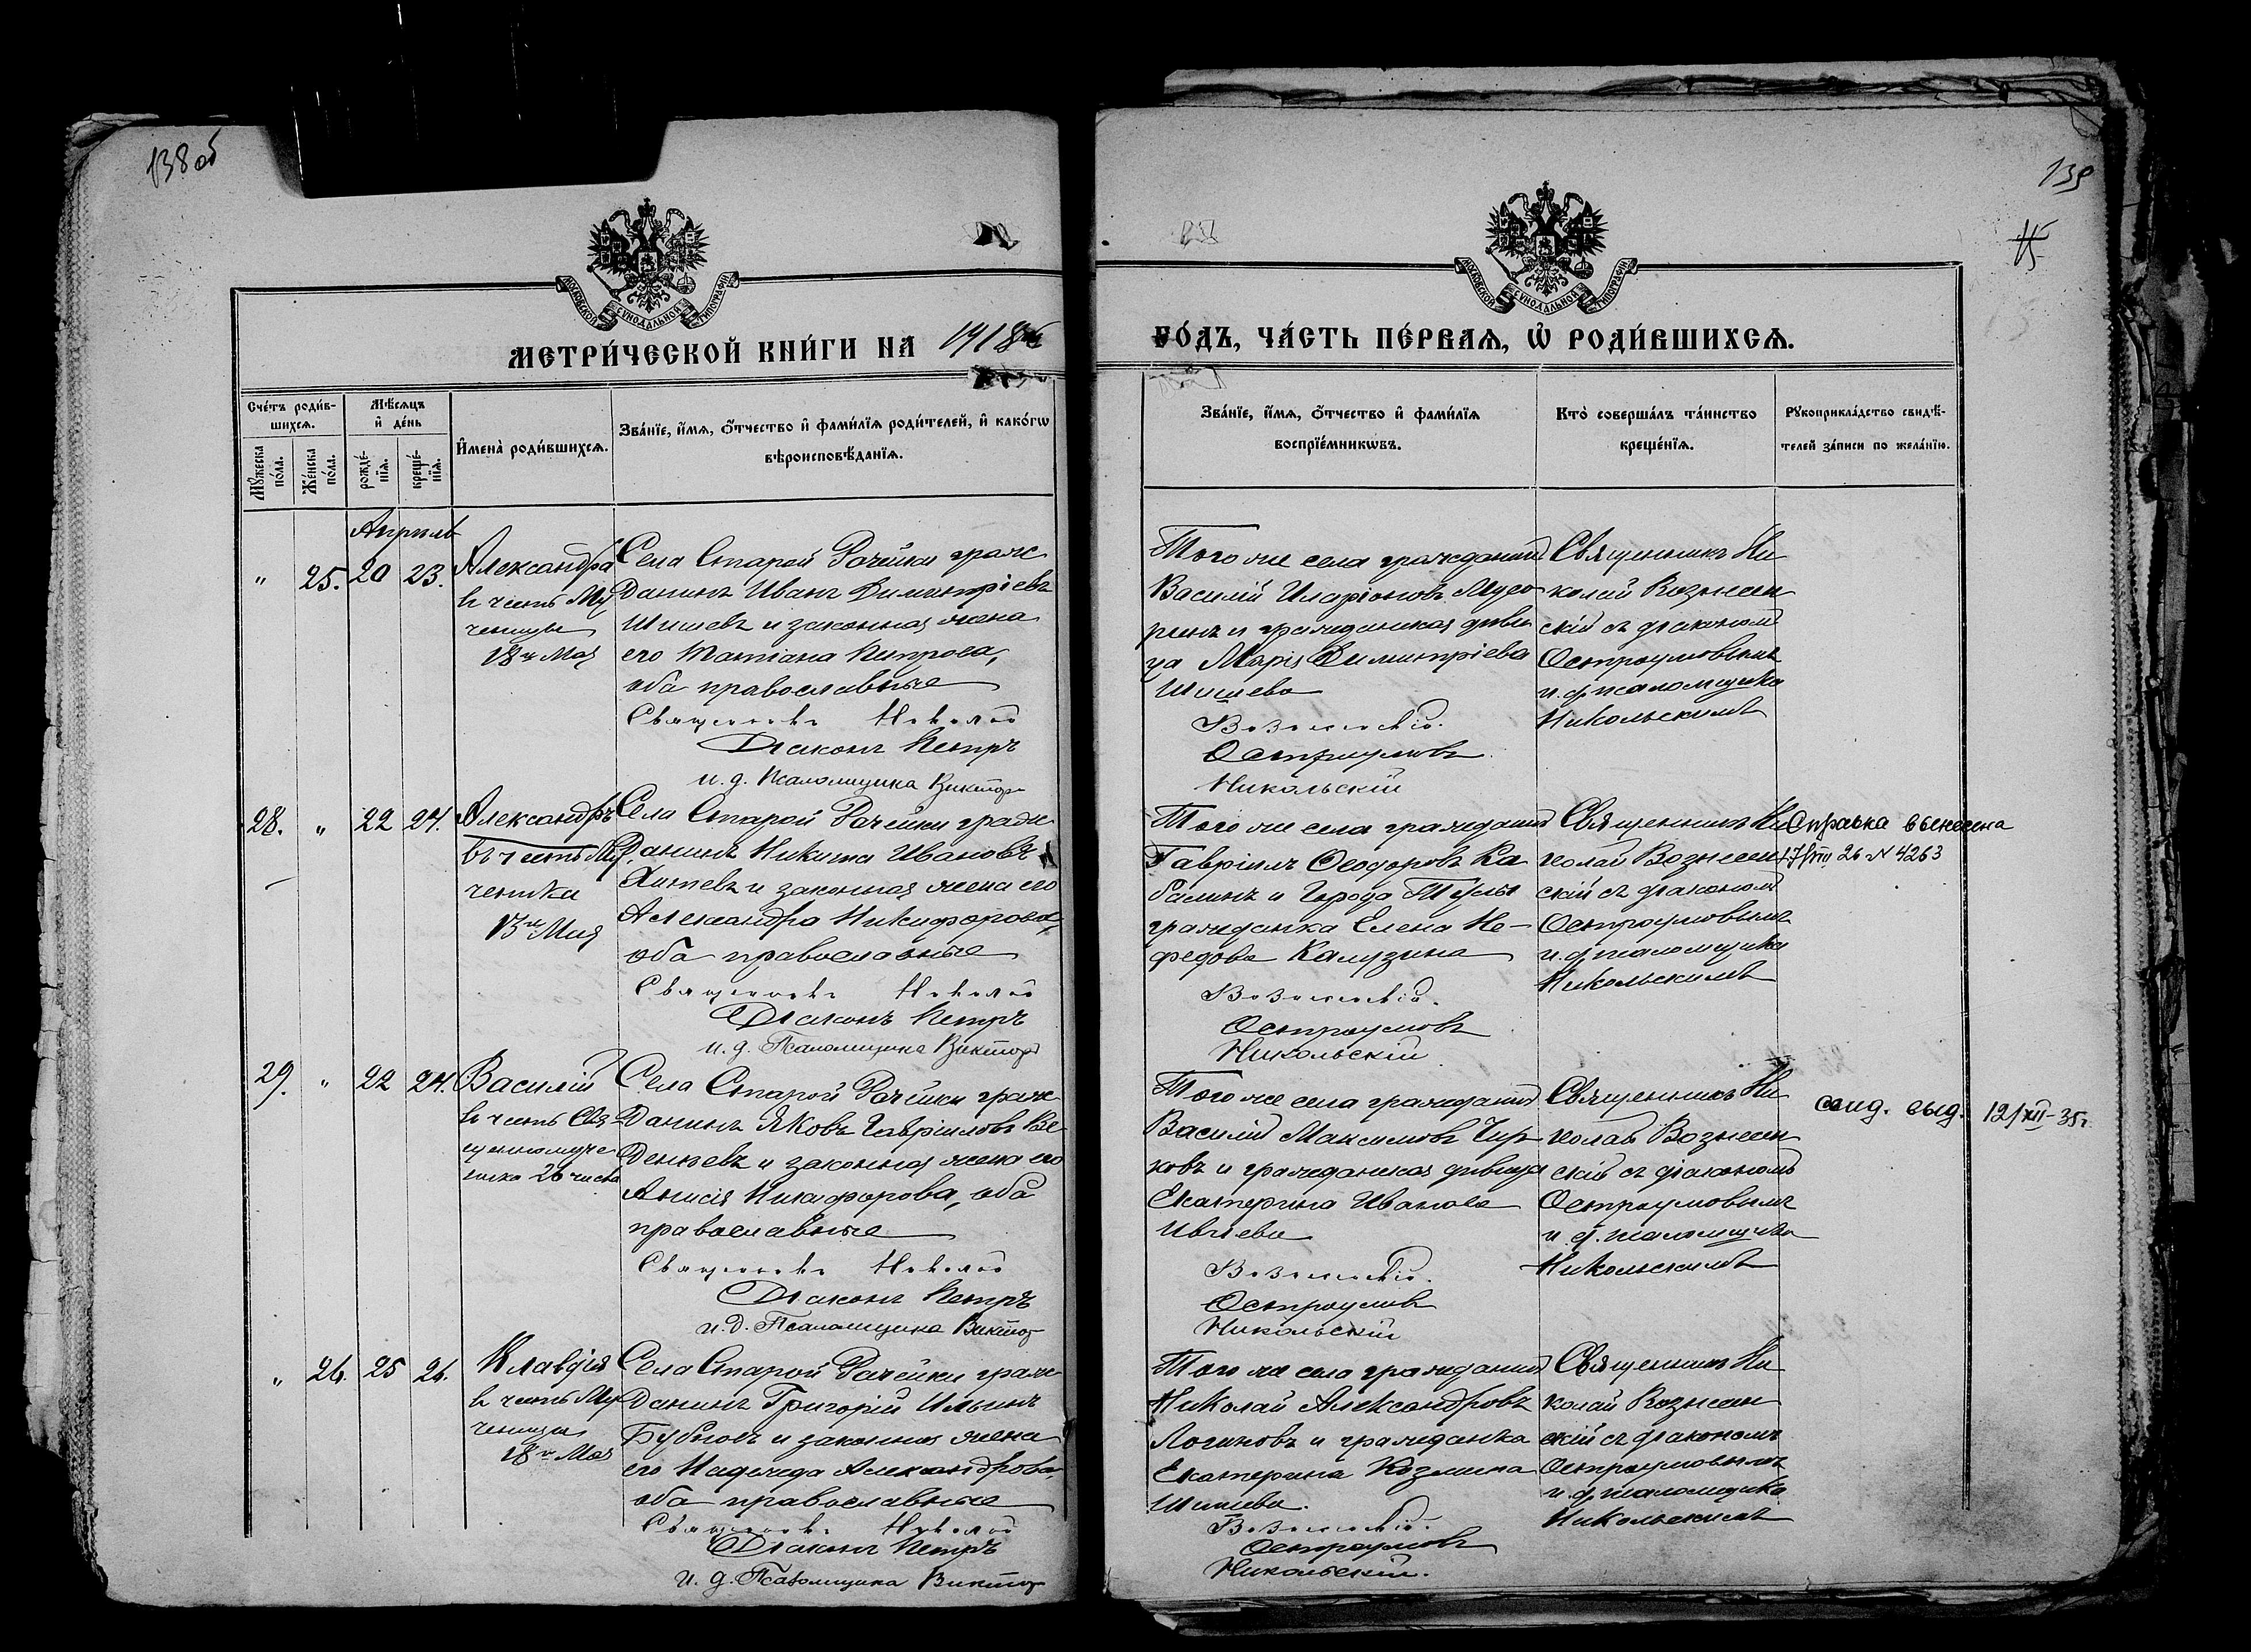 138 об
139
МОСКОВСКОЙ СѴНОДАЛЬНОЙ ТИПОГРАФІИ
МОСКОВСКОЙ СѴНОДАЛЬНОЙ ТИПОГРАФІИ
МЕТРИ́ЧЕСКОЙ КНИ́ГИ НА 1918й
ГО́ДЪ, ЧА́СТЬ ПЕ́РВАѦ, Ѡ҆ РОДИ́ВШИХСѦ.
Сче́тъ роди́в-
шихсѧ.
Мꙋ́жеска по́ла.
Же́нска по́ла.
Мѣ́сѧцъ
и҆ де́нь
рожде́-
нїѧ.
креще́-
нїѧ.
И҆мена̀ роди́вшихсѧ.
Зва́нїе, и҆́мѧ, ѻ҆́тчество и҆ фами́лїѧ роди́телей, и҆ како́гѡ
вѣроисповѣ́данїѧ.
Зва́нїе, и҆́мѧ, ѻ҆́тчество и҆ фами́лїѧ
воспрїе́мникѡвъ.
Кто̀ соверша́лъ та́инство
креще́нїѧ.
Рꙋкоприкла́дство свидѣ́-
телей за́писи по жела́нїю.
Апрель
" 25. 20 23.
Александра
въ честь Му
ченицы
18го Мая
Села Старой Рачейки граж
данинъ Иванъ Димитріевъ
Шишевъ и законная жена
его Татіана Петрова,
оба православные
Священникъ Николай
Діаконъ Петръ
и. д. Псаломщика Виктор
Того же села гражданинъ
Василій Иларіоновъ
и гражданская дѣви
ца Марія Димитріева
Шишева
Вознесенскій.
Остроумовъ
Никольскій
Священникъ Ни
колай Вознесен
скій съ діакономъ
Остроумовымъ
и. д. псаломщика
Никольскимъ
28. " 22 24.
Александръ
въ честь Му
ченика
13го Мая
Села Старой Рачейки граж
данинъ Никита Ивановъ
и законная жена его
Александра Никифорова,
оба православные
Священникъ Николай
Діаконъ Петръ
и. д. Псаломщика Виктор
Того же села гражданинъ
Гавріилъ Ѳеодоровъ Ка
и Города
гражданка Елена Не-
федова Калузина
Вознесенскій.
Остроумовъ
Никольскій
Священникъ Ни
колай Вознесен
скій съ діакономъ
Остроумовымъ
и. д. псаломщика
Никольскимъ
Справка вынесена
17/VIII 26 N 4263
29. " 22 24.
Василій
въ честь Свя
щенномуче
ника 26 числа
Села Старой Рачейки граж
данинъ Яковъ Гавріиловъ Ве
деневъ и законная жена его
Анисія Никифорова, оба
православные
Священникъ Николай
Діаконъ Петръ
и. д. Псаломщика Виктор
Того же села гражданинъ
Василій Максимовъ Чир
ковъ и гражданская дѣвица
Екатерина Иванова
Ивлева
Вознесенскій.
Остроумовъ
Никольскій
Священникъ Ни
колай Вознесен
скій съ діакономъ
Остроумовымъ
и. д. псаломщика
Никольскимъ
свид. выд. 12/XII-35г.
" 26. 25 26.
Клавдія
въ честь Му
ченицы
18го Мая
Села Старой Рачейки граж
данинъ Григорій Ильинъ
Бубновъ и законная жена
его Надежда Александрова
оба православные
Священникъ Николай
Діаконъ Петръ
и. д. Псаломщика Виктор
Того же села гражданинъ
Николай Александровъ
Логиновъ и гражданка
Екатерина Козмина
Шишева.
Вознесенскій.
Остроумовъ
Никольскій.
Священникъ Ни
колай Вознесен
скій съ діакономъ
Остроумовымъ
и. д. псаломщика
Никольскимъ